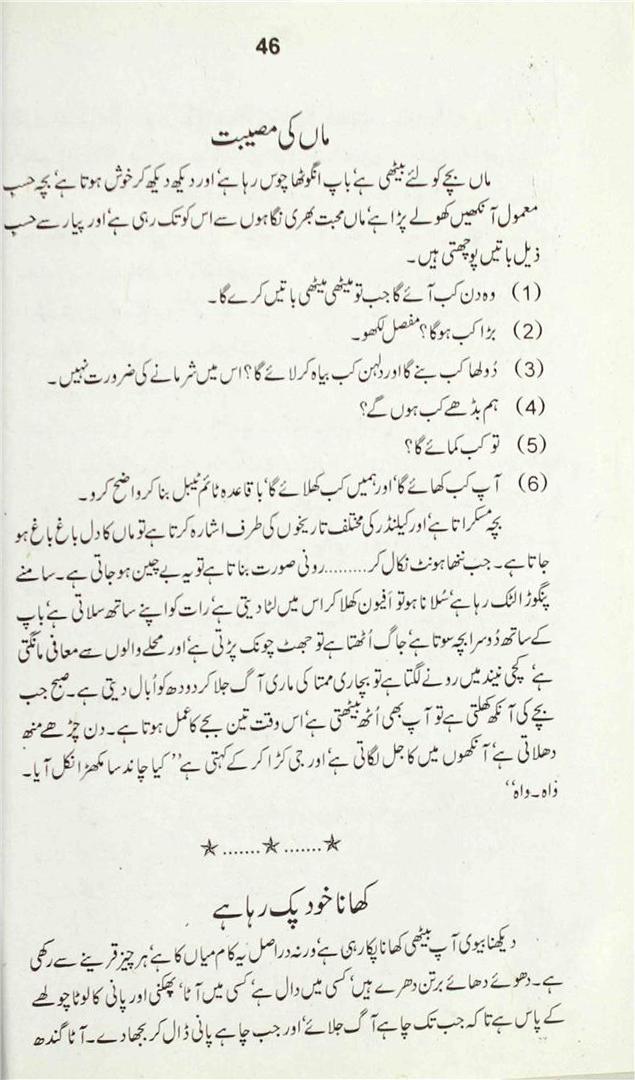 46
ماں کی مصیبت
ماں بچے کو لئے بیٹھی ہے‘ باپ انگوٹھا چوس رہا ہے‘ اور دیکھ دیکھ کر خوش ہوتا ہے‘ بچہ حسب
معمول آنکھیں کھولے پڑا ہے‘ ماں محبت بھری نگاہوں سے اس کو تک رہی ہے‘ اور پیار سے حسب
ذیل باتیں پوچھتی ہیں۔
(1) وہ دن کب آئے گا جب تو میٹھی میٹھی باتیں کرے گا۔
(2) بڑا کب ہوگا؟ مفصل لکھو۔
(3) دُولھا کب بنے گا اور دلہن کب بیاہ کر لائے گا؟ اس میں شرمانے کی ضرورت نہیں۔
(4) ہم بڈھے کب ہوں گے؟
(5) تو کب کمائے گا؟
(6) آپ کب کھائے گا‘ اور ہمیں کب کھلائے گا‘ باقاعدہ ٹائم ٹیبل بنا کر واضح کرو۔
بچہ مسکراتا ہے‘ اور کیلنڈر کی مختلف تاریخوں کی طرف اشارہ کرتا ہے تو ماں کا دل باغ باغ ہو
جاتا ہے۔ جب ننھا ہونٹ نکال کر.........رونی صورت بناتا ہے تو یہ بے چین ہو جاتی ہے۔ سامنے
پنگوڑا لٹک رہا ہے‘ سُلانا ہو تو اَفیون کھلا کر اس میں لٹا دیتی ہے‘ رات کو اپنے ساتھ سلاتی ہے‘ باپ
کے ساتھ دُوسرا بچہ سوتا ہے‘ جاگ اُٹھتا ہے تو جھٹ چونک پڑتی ہے‘ اور محلے والوں سے معافی مانگتی
ہے‘ کچی نیند میں رونے لگتا ہے تو بچاری ممتا کی ماری آگ جلا کر دودھ کو اُبال دیتی ہے۔ صبح جب
بچے کی آنکھ کھلتی ہے تو آپ بھی اُٹھ بیٹھتی ہے‘ اس وقت تین بجے کا عمل ہوتا ہے۔ دن چڑھے منھ
دھلاتی ہے‘ آنکھوں میں کاجل لگاتی ہے‘ اور جی کڑا کر کے کہتی ہے ’’کیا چاند سا مکھڑا نکل آیا۔
وَاہ۔ واہ‘‘
☆.......☆.......☆
کھانا خود پک رہا ہے
دیکھنا بیوی آپ بیٹھی کھانا پکا رہی ہے‘ ورنہ دراصل یہ کام میاں کا ہے‘ ہر چیز قرینے سے رکھی
ہے۔ دھوئے دھائے برتن دھرے ہیں‘ کسی میں دال ہے‘ کسی میں آٹا‘ پھکنی اور پانی کا لوٹا چولھے
کے پاس ہے تاکہ جب تک چاہے آگ جلائے‘ اور جب چاہے پانی ڈال کر بجھا دے۔ آٹا گندھ